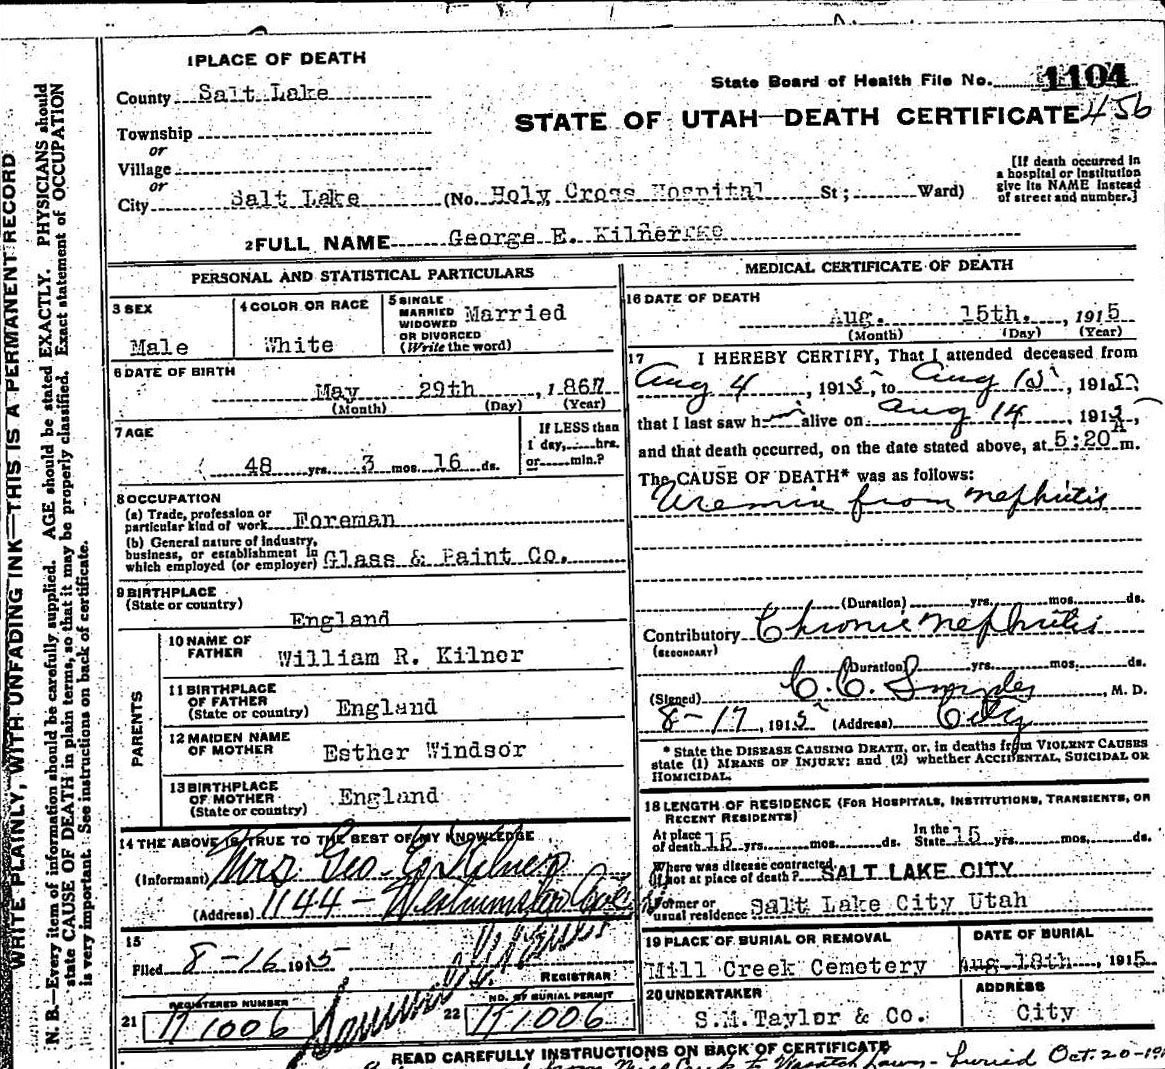 1 PLACE OF DEATH
County Salt Lake
State Board of Health File No. 1104
STATE OF UTAH—DEATH CERTIFICATE 456
Township
or
Village
or
City Salt Lake (No. Holy Cross Hospital St; Ward)
[If death occurred in
a hospital or institution
give its NAME instead
of street and number.]
2 FULL NAME George E. Kilner
WRITE PLAINLY, WITH UNFADING INK—THIS IS A PERMANENT RECORD
N. B.—Every item of information should be carefully supplied. AGE should be stated EXACTLY. PHYSICIANS should
state CAUSE OF DEATH in plain terms, so that it may be properly classified. Exact statement of OCCUPATION
is very important. See instructions on back of certificate.
PERSONAL AND STATISTICAL PARTICULARS
3 SEX
Male
4 COLOR OR RACE
White
5 SINGLE
MARRIED
WIDOWED
OR DIVORCED
(Write the word)
Married
6 DATE OF BIRTH
May 29th, 1867
(Month) (Day) (Year)
7 AGE
48 yrs. 3 mos. 16 ds.
If LESS than
1 day, hrs.
or min.?
8 OCCUPATION
(a) Trade, profession or
particular kind of work Foreman
(b) General nature of industry,
business, or establishment in
which employed (or employer) Glass & Paint Co.
9 BIRTHPLACE
(State or country)
England
PARENTS
10 NAME OF
FATHER
William R. Kilner
11 BIRTHPLACE
OF FATHER
(State or country)
England
12 MAIDEN NAME
OF MOTHER
Esther Windsor
13 BIRTHPLACE
OF MOTHER
(State or country)
England
14 THE ABOVE IS TRUE TO THE BEST OF MY KNOWLEDGE
(Informant) Mrs Geo. E. Kilner
(Address) 1144 - Westminster Ave
15
Filed 8-16 1915
REGISTRAR
REGISTERED NUMBER
21 H1006
NO. OF BURIAL PERMIT
22 H1006
MEDICAL CERTIFICATE OF DEATH
16 DATE OF DEATH
Aug. 15th., 1915
(Month) (Day) (Year)
17 I HEREBY CERTIFY, That I attended deceased from
Aug 4, 1915, to Aug 15, 1915,
that I last saw h alive on Aug 14, 1915,
and that death occurred, on the date stated above, at 5:20 A m.
The CAUSE OF DEATH* was as follows:
Uremia from nephritis
(Duration) yrs. mos. ds.
Contributory Chronic nephritis
(SECONDARY)
(Duration) yrs. mos. ds.
(Signed) C. C. Snyder, M. D.
8-17, 1915 (Address) City
* State the DISEASE CAUSING DEATH, or, in deaths from VIOLENT CAUSES
state (1) MEANS OF INJURY; and (2) whether ACCIDENTAL, SUICIDAL OR
HOMICIDAL.
18 LENGTH OF RESIDENCE (FOR HOSPITALS, INSTITUTIONS, TRANSIENTS, OR
RECENT RESIDENTS)
At place
of death 15 yrs. mos. ds. In the
State 15 yrs. mos. ds.
Where was disease contracted
if not at place of death? SALT LAKE CITY
Former or
usual residence Salt Lake City Utah
19 PLACE OF BURIAL OR REMOVAL
Mill Creek Cemetery
DATE OF BURIAL
Aug 18th, 1915
20 UNDERTAKER
S.M. Taylor & Co.
ADDRESS
City
READ CAREFULLY INSTRUCTIONS ON BACK OF CERTIFICATE
from Mill Creek to Wasatch Lawn - buried Oct. 20-19